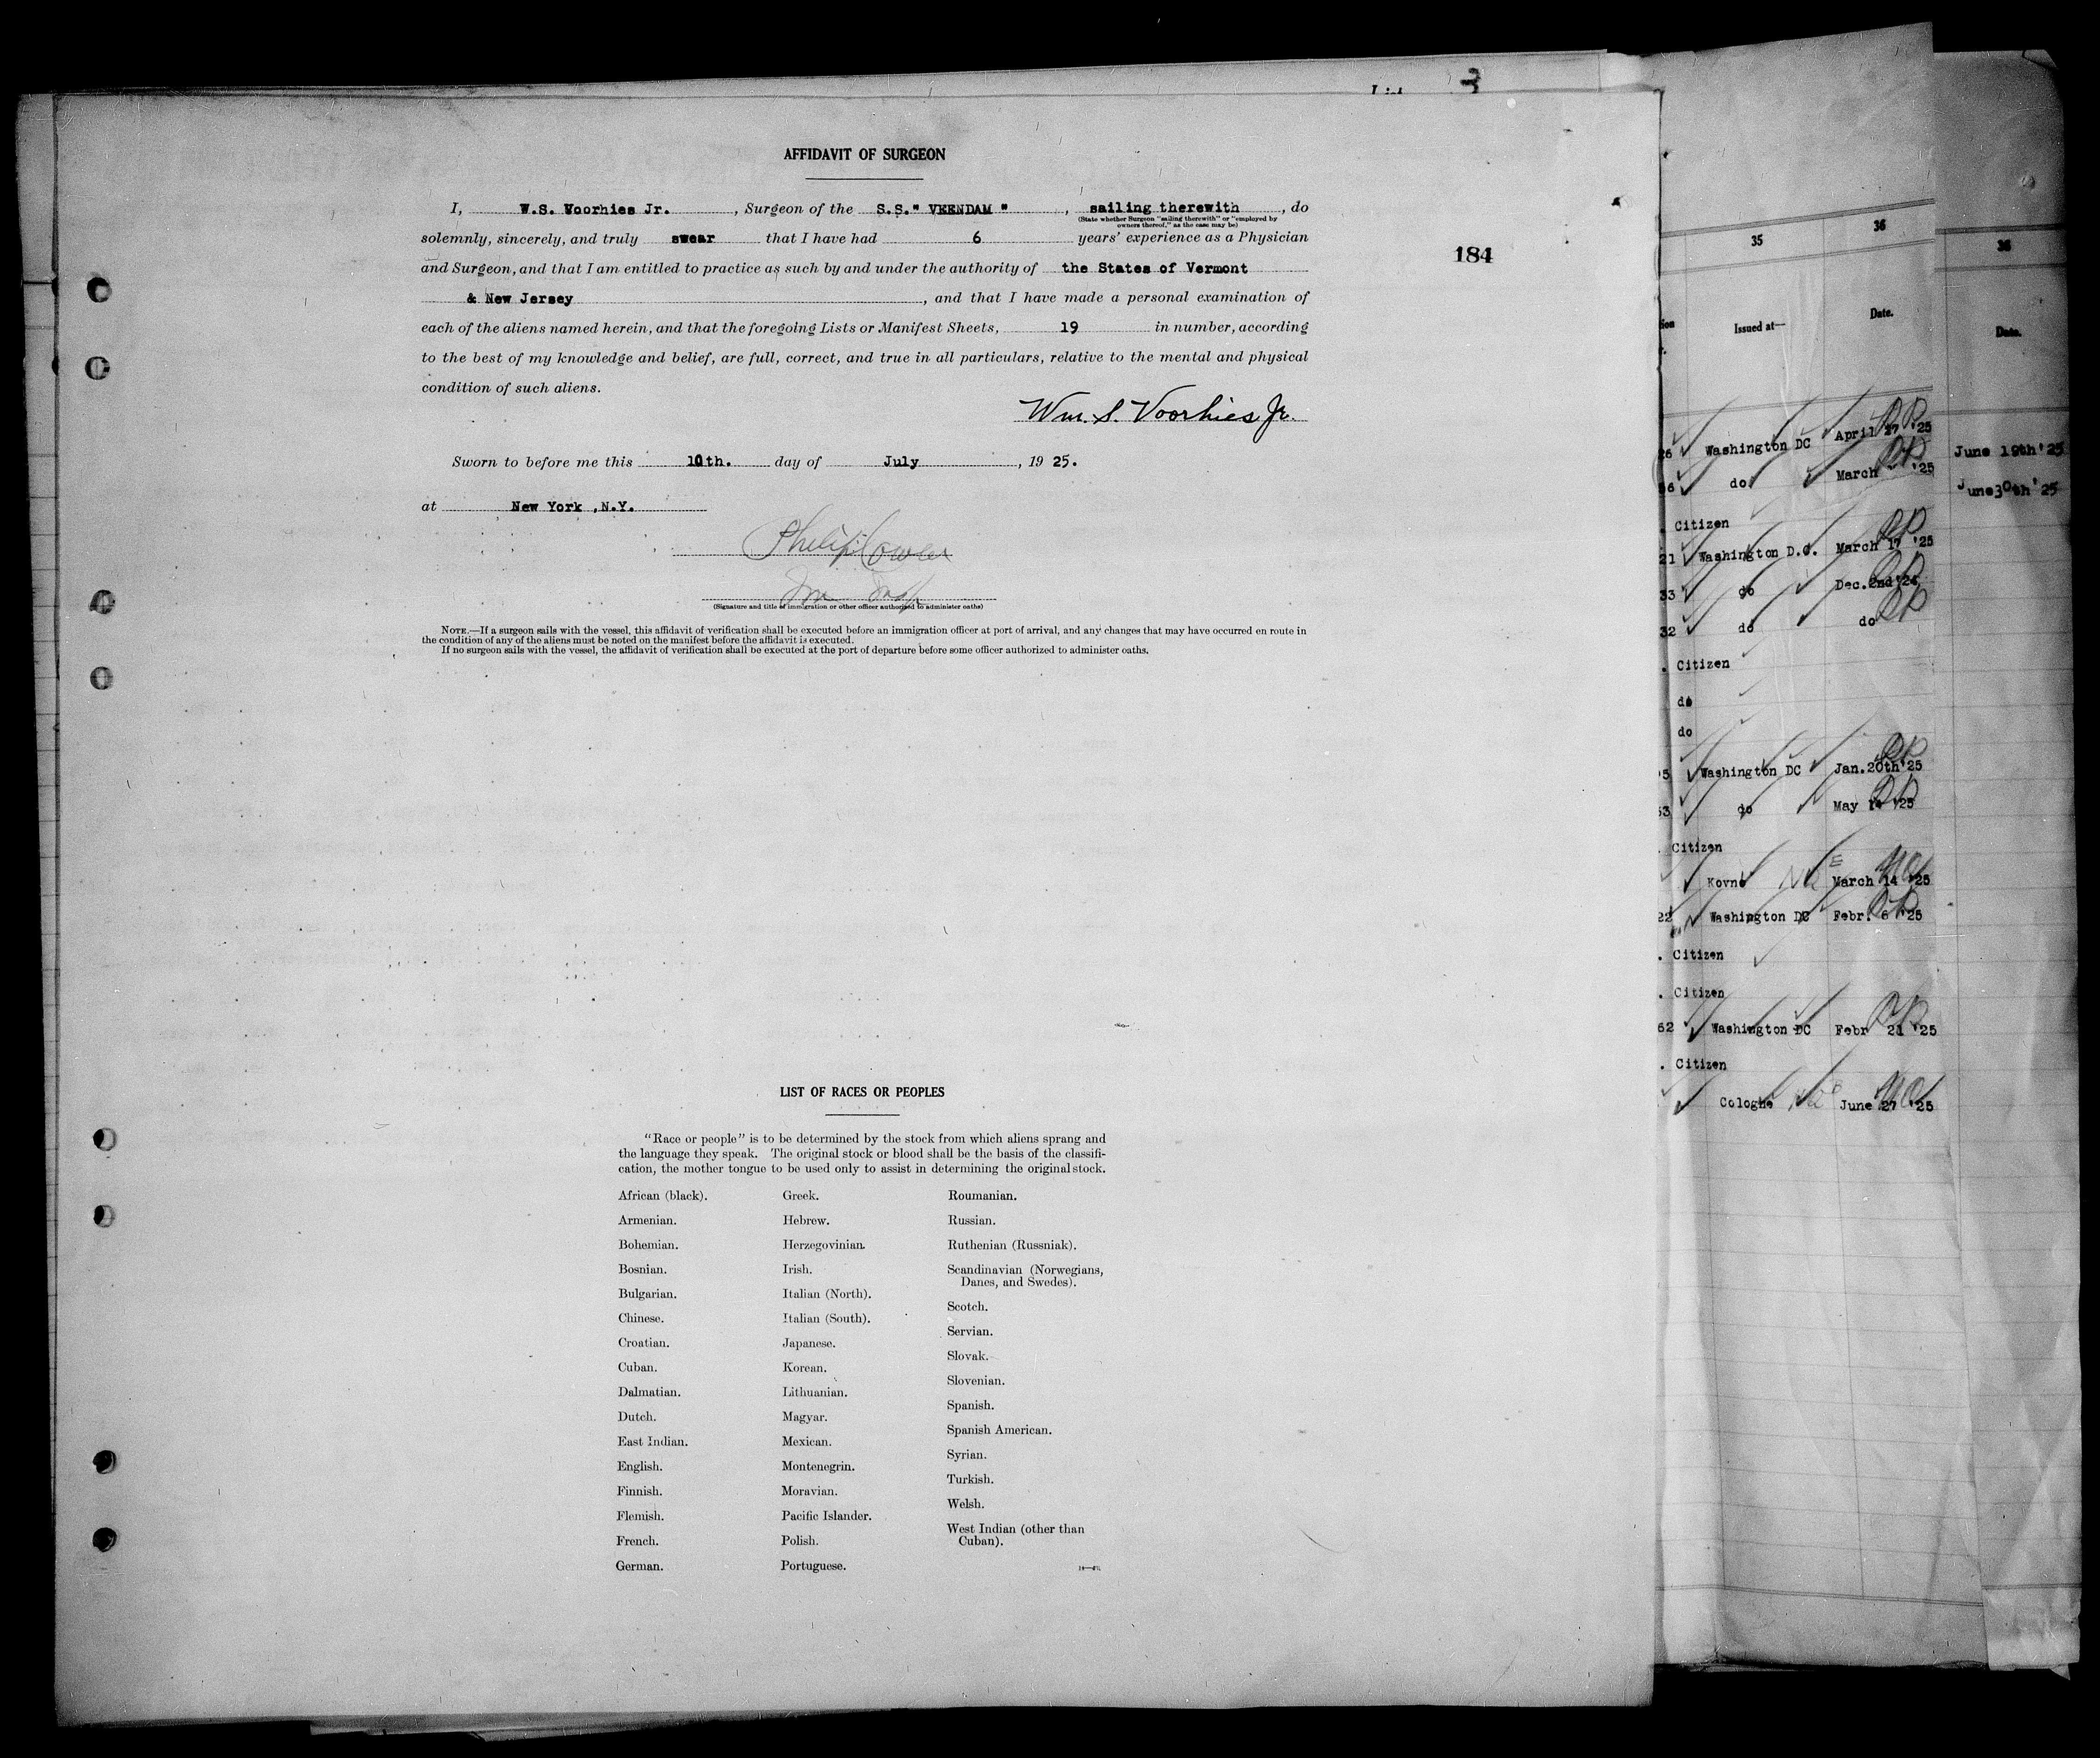 AFFIDAVIT OF SURGEON
I, W.S. Voorhies Jr. , Surgeon of the S.S." VEENDAM " , sailing therewith , do
(State whether Surgeon "sailing therewith" or "employed by
owners thereof," as the case may be)
solemnly, sincerely, and truly swear that I have had 6 years' experience as a Physician
and Surgeon, and that I am entitled to practice as such by and under the authority of the States of Vermont
& New Jersey , and that I have made a personal examination of
each of the aliens named herein, and that the foregoing Lists or Manifest Sheets, 19 in number, according
to the best of my knowledge and belief, are full, correct, and true in all particulars, relative to the mental and physical
condition of such aliens.
Wm. S. Voorhies Jr.
Sworn to before me this 10th. day of July , 19 25.
at New York ,N.Y.
Philip Cowen
Im Insp
(Signature and title of immigration or other officer authorized to administer oaths)
NOTE.—If a surgeon sails with the vessel, this affidavit of verification shall be executed before an immigration officer at port of arrival, and any changes that may have occurred en route in
the condition of any of the aliens must be noted on the manifest before the affidavit is executed.
If no surgeon sails with the vessel, the affidavit of verification shall be executed at the port of departure before some officer authorized to administer oaths.
184
LIST OF RACES OR PEOPLES
"Race or people" is to be determined by the stock from which aliens sprang and
the language they speak. The original stock or blood shall be the basis of the classifi-
cation, the mother tongue to be used only to assist in determining the original stock.
African (black).
Armenian.
Bohemian.
Bosnian.
Bulgarian.
Chinese.
Croatian.
Cuban.
Dalmatian.
Dutch.
East Indian.
English.
Finnish.
Flemish.
French.
German.
Greek.
Hebrew.
Herzegovinian.
Irish.
Italian (North).
Italian (South).
Japanese.
Korean.
Lithuanian.
Magyar.
Mexican.
Montenegrin.
Moravian.
Pacific Islander.
Polish.
Portuguese.
Roumanian.
Russian.
Ruthenian (Russniak).
Scandinavian (Norwegians,
Danes, and Swedes).
Scotch.
Servian.
Slovak.
Slovenian.
Spanish.
Spanish American.
Syrian.
Turkish.
Welsh.
West Indian (other than
Cuban).
List 3
35 36
Issued at— Date.
26 Washington DC April 27 '25
66 do March '25
. Citizen
21 Washington D.C. March 17 '25
33 do Dec.2nd'24
32 do do
. Citizen
do
do
5 Washington DC Jan.20th'25
53 do May 14 '25
. Citizen
Kovno March 14 '25
22 Washington DC Febr. 6 '25
. Citizen
. Citizen
62 Washington DC Febr 21 '25
. Citizen
Cologne June 27 '25
36
Date.
June 19th'25
June30th'25